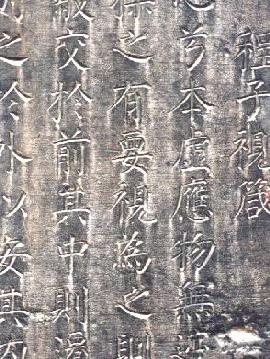 程子視箴
心兮本虛應物無
操之有要視為之則
蔽交於前其中則遷
制之於外以安其內